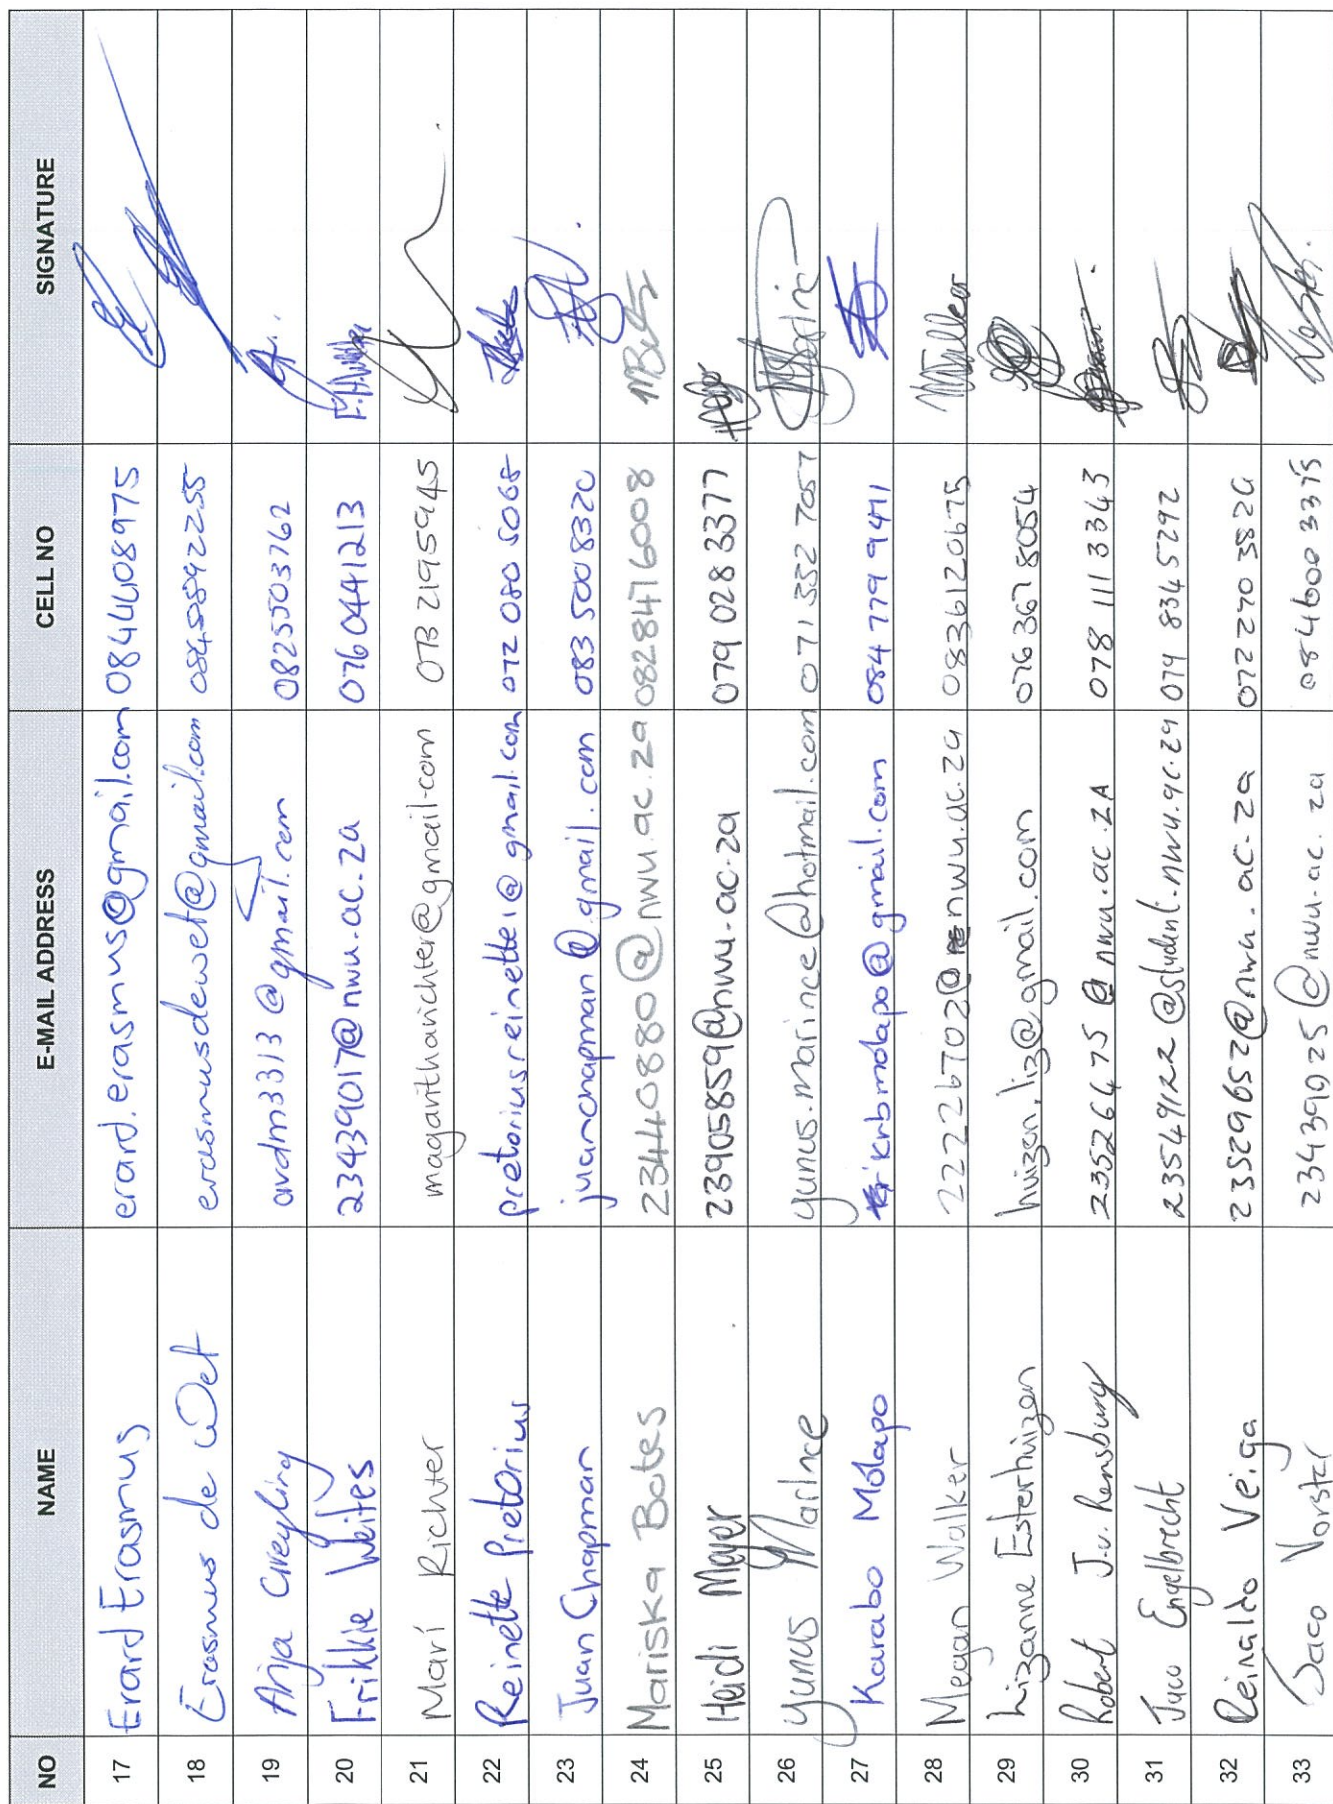 NO NAME E-MAIL ADDRESS CELL NO SIGNATURE
17 Erard Erasmus erard.erasmus@gmail.com 0844408975
18 Erasmus de Wet erasmusdewet@gmail.com 0845892255
19 Anja Greyling avdm3313@gmail.com 0825503762
20 Frikkie Weites 23439017@nwu.ac.za 0760441213
21 Marí Richter magaritharichter@gmail.com 073 2195945
22 Reinette Pretorius pretoriusreinette1@gmail.com 072 080 5068
23 Juan Chapman juanchapman@gmail.com 083 500 8320
24 Mariska Botes 23440880@nwu.ac.za 0828476008
25 Heidi Meyer 23905859@nwu.ac.za 079 028 3377
26 Yunus Marince yunus.marince@hotmail.com 071 332 7057
27 Karabo Molapo krbmolapo@gmail.com 084 779 9471
28 Megan Walker 22226702@nwu.ac.za 0836120675 MWalker
29 Lizanne Esterhuizen huizen.liz@gmail.com 076 367 8054
30 Robert J.v. Rensburg 23526475@nwu.ac.ZA 078 111 3343
31 Engelbrecht 23549122@student.nwu.ac.za 079 834 5292
32 Reinaldo Veiga 23529652@nwu.ac.za 072 270 3820
33 Jaco Vorster 23439025@nwu.ac.za 084 600 3375